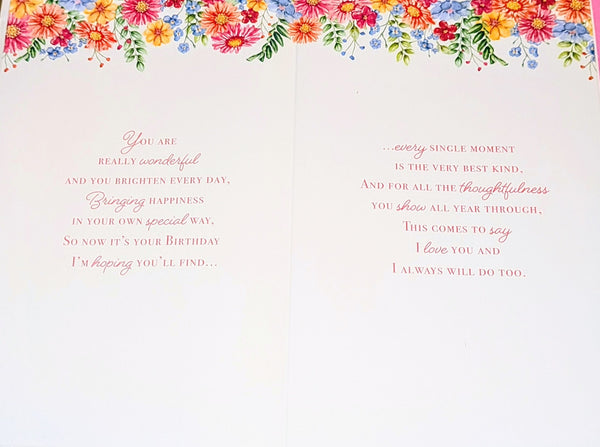 You are
really wonderful
and you brighten every day,
Bringing happiness
in your own special way,
So now it's your Birthday
I'm hoping you'll find...
...every single moment
is the very best kind.
And for all the thoughtfulness
you show all year through,
This comes to say
I love you and
I always will do too.